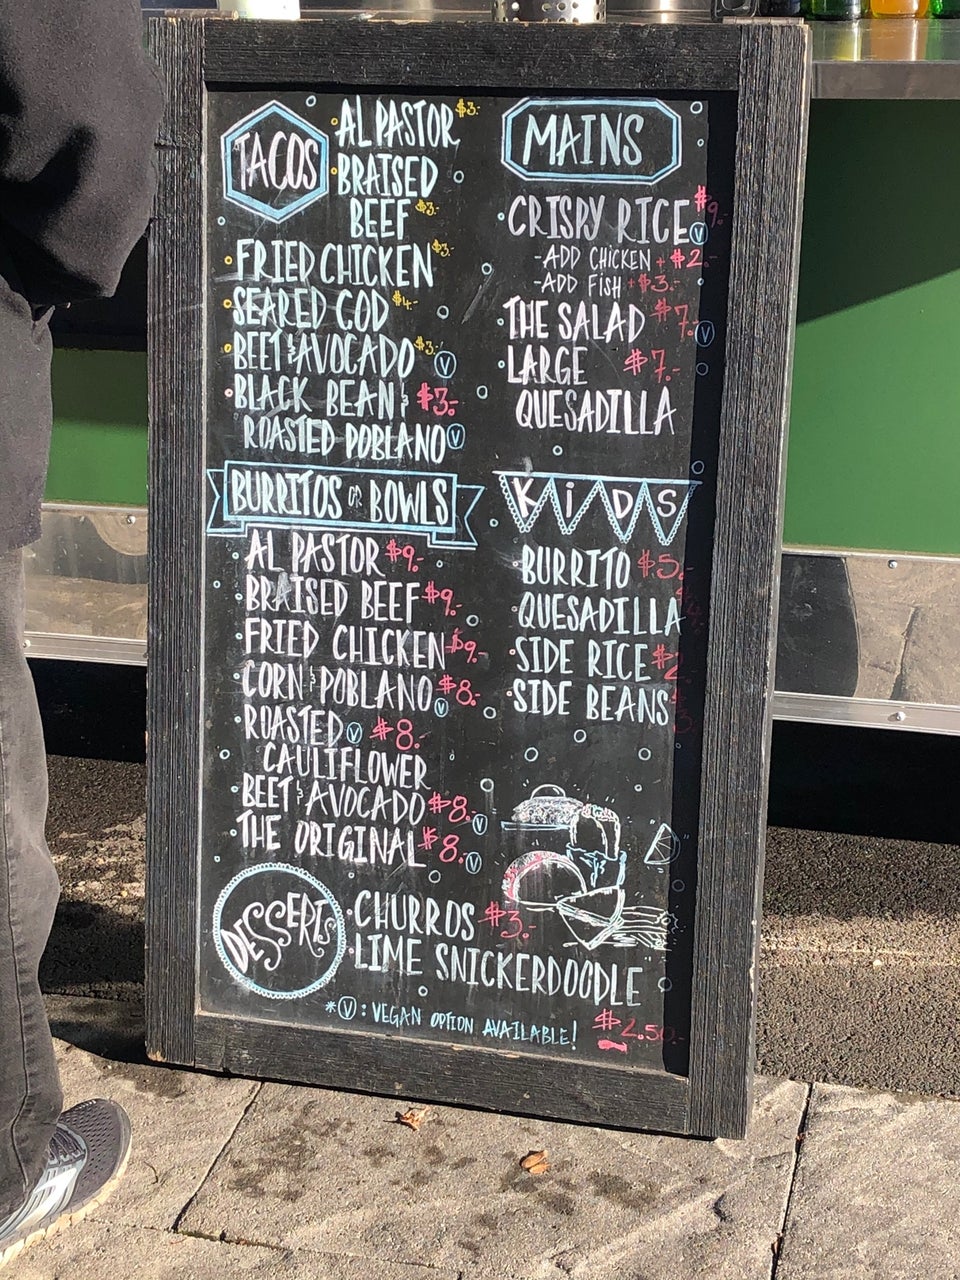 TACOS
AL PASTOR $3.-
BRAISED
BEEF $3.-
FRIED CHICKEN $3.-
SEARED COD $4.-
BEET & AVOCADO $3.- V
BLACK BEAN & $3.-
ROASTED POBLANO V
BURRITOS OR BOWLS
AL PASTOR $9.-
BRAISED BEEF $9.-
FRIED CHICKEN $9.-
CORN & POBLANO $8.- V
ROASTED V $8.
CAULIFLOWER
BEET & AVOCADO $8. V
THE ORIGINAL $8. V
MAINS
CRISPY RICE $9.- V
-ADD CHICKEN + $2.-
-ADD FISH + $3.-
THE SALAD $7. V
LARGE $7.-
QUESADILLA
KIDS
BURRITO $5.
QUESADILLA
SIDE RICE $2
SIDE BEANS
DESSERTS
CHURROS $3.-
LIME SNICKERDOODLE
$2.50
*V: VEGAN OPTION AVAILABLE!